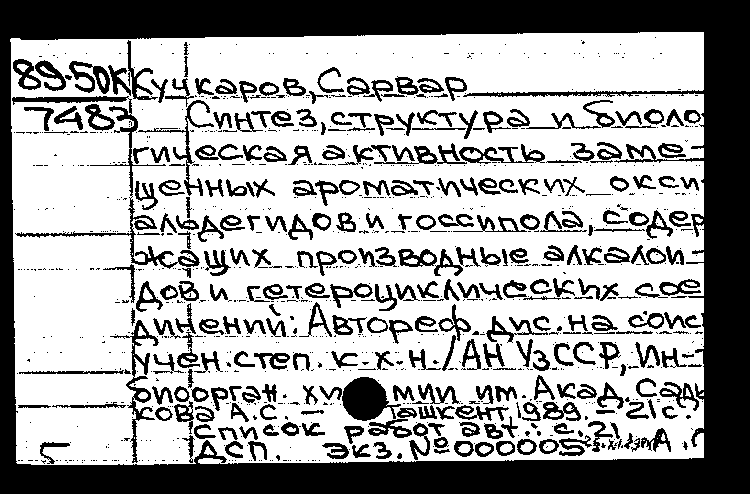 89-50К Кучкаров, Сарвар
7483 Синтез, структура и биоло-
гическая активность заме-
щенных ароматических окси-
альдегидов и госсипола, содер
жащих производные алкалои-
дов и гетероциклических сое
динений: Автореф. дис. на соиск
учен. степ. к.х.н. / АН УзССР, Ин-т
биоорган. хи мии им. Акад. Сады
кова А.С. — Ташкент, 1989. - 21с.
Список работ авт.: с. 21
5 ДСП. Экз. № 000005